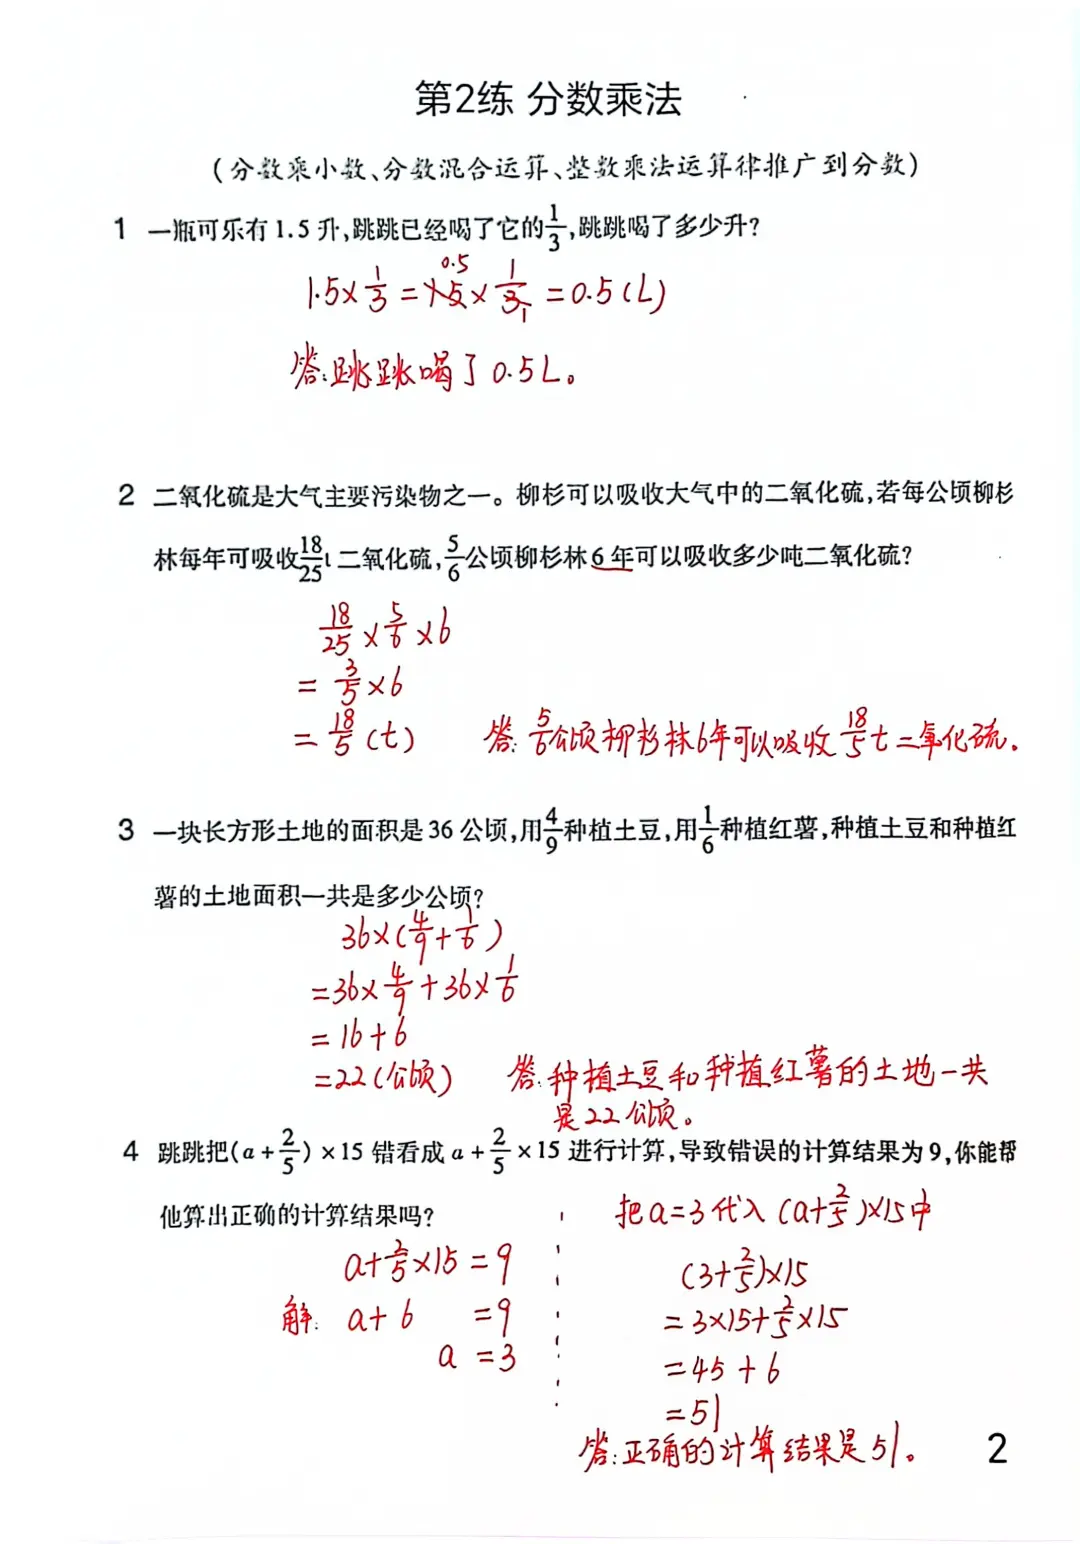 第2练 分数乘法
(分数乘小数、分数混合运算、整数乘法运算律推广到分数)
1 一瓶可乐有1.5升,跳跳已经喝了它的1/3,跳跳喝了多少升?
1.5×1/3=1.5×1/3=0.5(L)
0.5
1
答:跳跳喝了0.5L。
2 二氧化硫是大气主要污染物之一。柳杉可以吸收大气中的二氧化硫,若每公顷柳杉
林每年可吸收18/25t二氧化硫,5/6公顷柳杉林6年可以吸收多少吨二氧化硫?
18/25×5/6×6
=3/5×6
=18/5(t) 答:5/6公顷柳杉林6年可以吸收18/5t二氧化硫.
3 一块长方形土地的面积是36公顷,用4/9种植土豆,用1/6种植红薯,种植土豆和种植红
薯的土地面积一共是多少公顷?
36×(4/9+1/6)
=36×4/9+36×1/6
=16+6
=22(公顷) 答:种植土豆和种植红薯的土地一共
是22公顷。
4 跳跳把(a+2/5)×15错看成a+2/5×15进行计算,导致错误的计算结果为9,你能帮
他算出正确的计算结果吗?
a+2/5×15=9
解: a+6 =9
a =3
把a=3代入(a+2/5)×15中
(3+2/5)×15
=3×15+2/5×15
=45+6
=51
答:正确的计算结果是51。
2